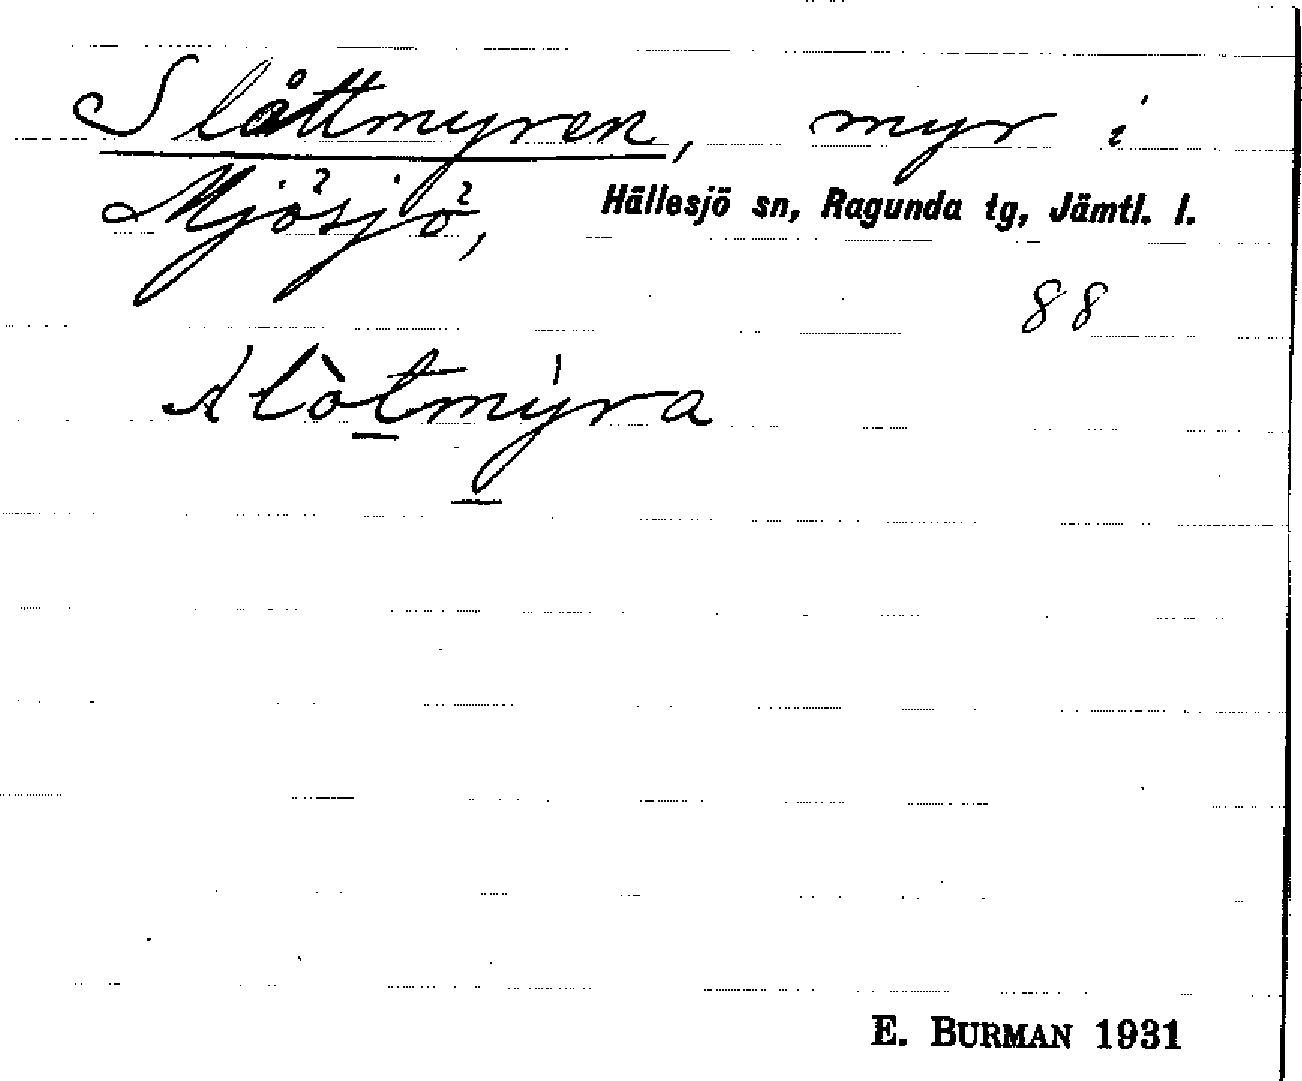 Slåttmyren, myr i
Mjösjö, Hällesjö sn, Ragunda tg, Jämtl. l.
88
Klòtmýra
E. BURMAN 1931